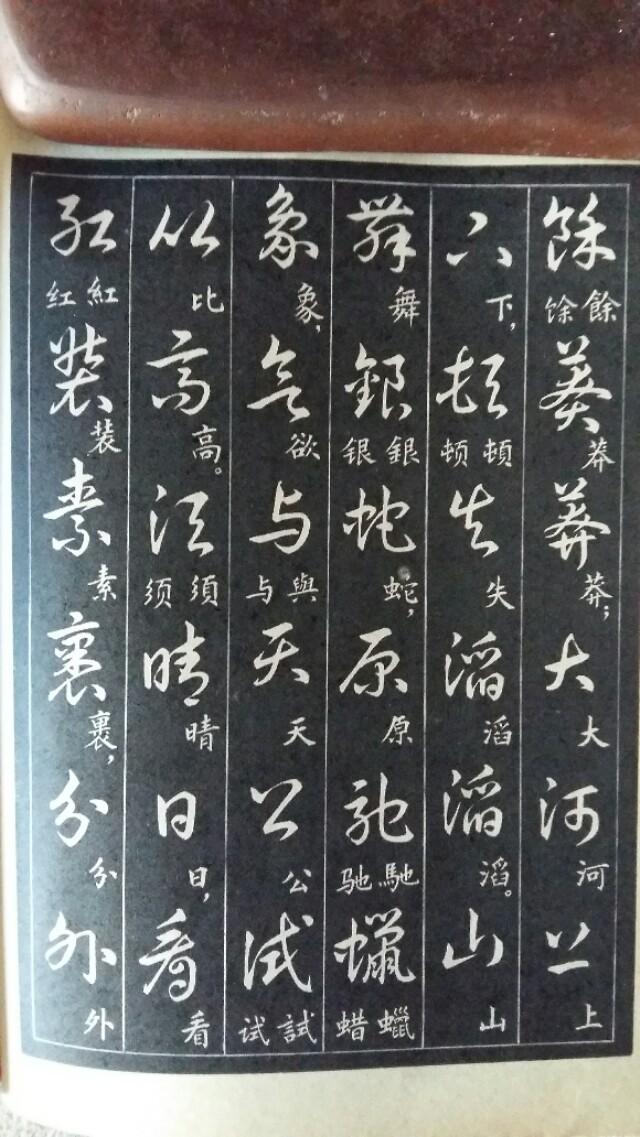 餘莽莽大河上
餘馀莽莽；大河上
下頓失滔滔山
下，頓顿失滔滔。山
舞銀蛇原馳蠟
舞銀银蛇，原馳驰蠟蜡
象欲与天公試
象，欲與与天公試试
比高須晴日看
比高。須须晴日，看
紅装素裹分外
紅红装素裹，分外